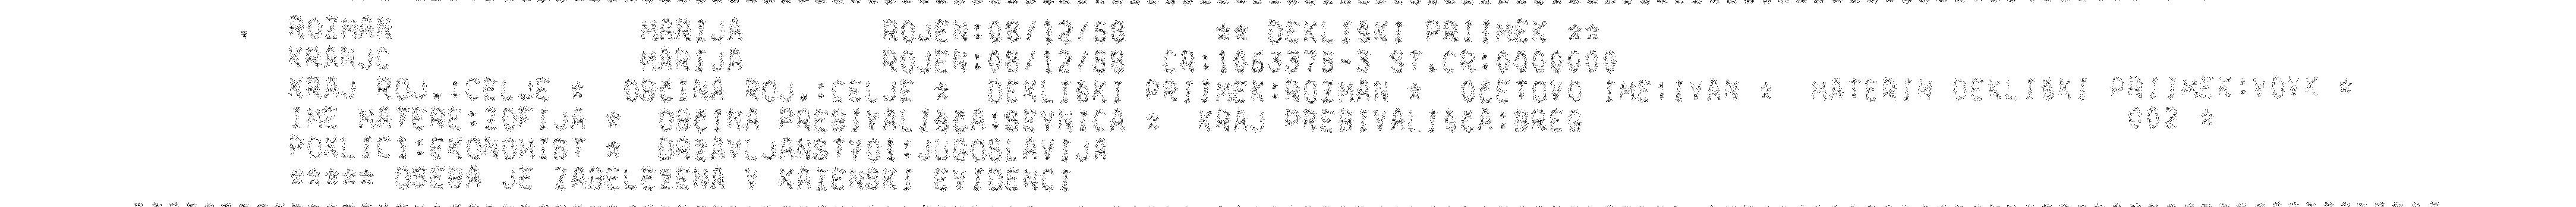 ROZMAN MARIJA ROJEN:08/12/58 ** DEKLIŠKI PRIIMEK **
KRANJC MARIJA ROJEN:08/12/58 CR:1063375-3 ST.CR:0000000
KRAJ ROJ.:CELJE * OBČINA ROJ.:CELJE * DEKLIŠKI PRIIMEK:ROZMAN * OČETOVO IME:IVAN * MATERIN DEKLIŠKI PRIIMEK:VOVK *
IME MATERE:ZOFIJA * OBČINA PREBIVALIŠČA:SEVNICA * KRAJ PREBIVALIŠČA:BREG 002 *
POKLIC1:EKONOMIST * DRŽAVLJANSTVO1:JUGOSLAVIJA
***** OSEBA JE ZABELEŽENA V KAZENSKI EVIDENCI